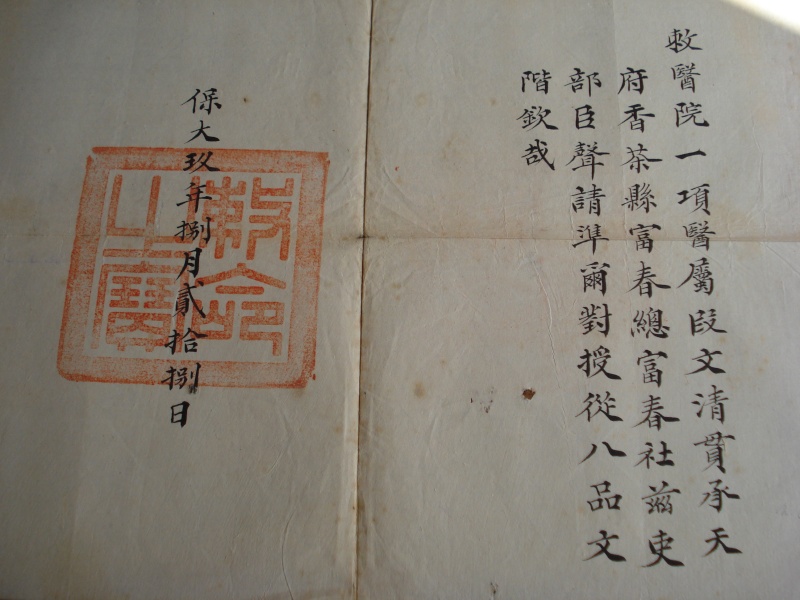 敕醫院一項醫屬段文清貫承天
府香茶縣富春總富春社茲吏
部臣聲請準爾對授從八品文
階欽哉
保大玖年捌月貳拾捌日
敕命之寶